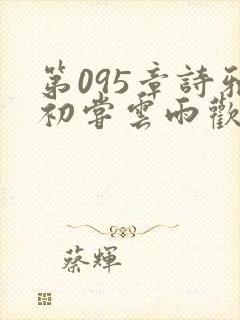 第095章詩雅
初嘗雲雨歡
蔡輝